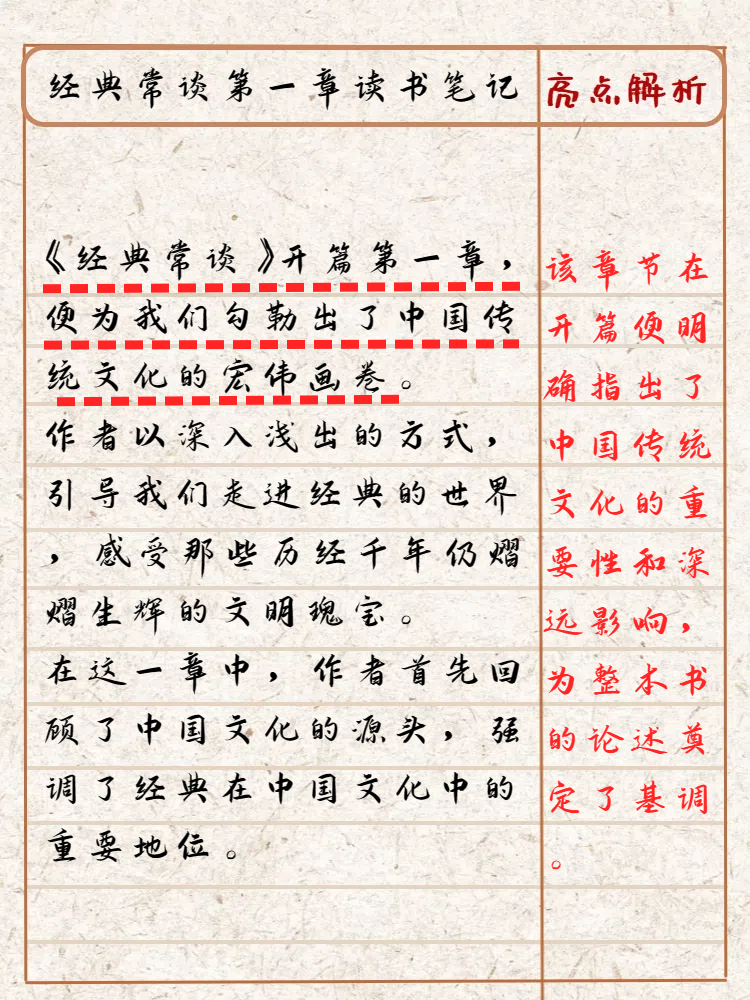 经典常谈第一章读书笔记
亮点解析
《经典常谈》开篇第一章，
便为我们勾勒出了中国传
统文化的宏伟画卷。
作者以深入浅出的方式，
引导我们走进经典的世界
，感受那些历经千年仍熠
熠生辉的文明瑰宝。
在这一章中，作者首先回
顾了中国文化的源头，强
调了经典在中国文化中的
重要地位。
该章节在
开篇便明
确指出了
中国传统
文化的重
要性和深
远影响，
为整本书
的论述奠
定了基调
。